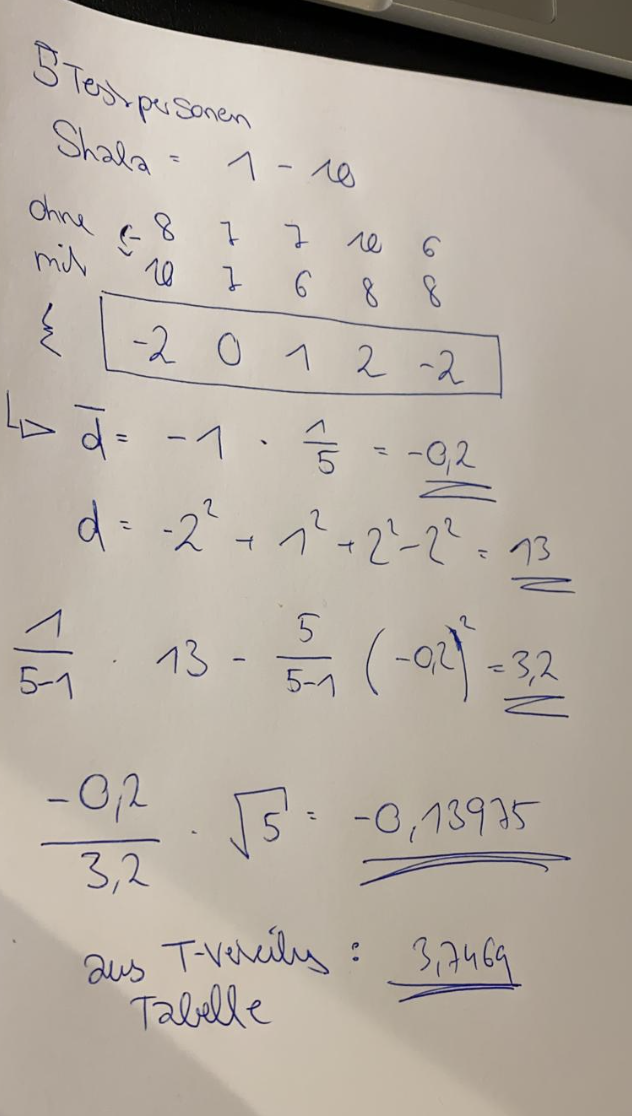 5 Testpersonen
Skala = 1 - 10
ohne 8 7 7 10 6
mit 10 7 6 8 8
-2 0 1 2 -2
d̄ = -1 · 1/5 = -0,2
d = -2² + 1² + 2² - 2² = 13
1/(5-1) · 13 - 5/(5-1) (-0,2)² = 3,2
-0,2/3,2 · √5 = -0,13975
aus T- : 3,7469
Tabelle